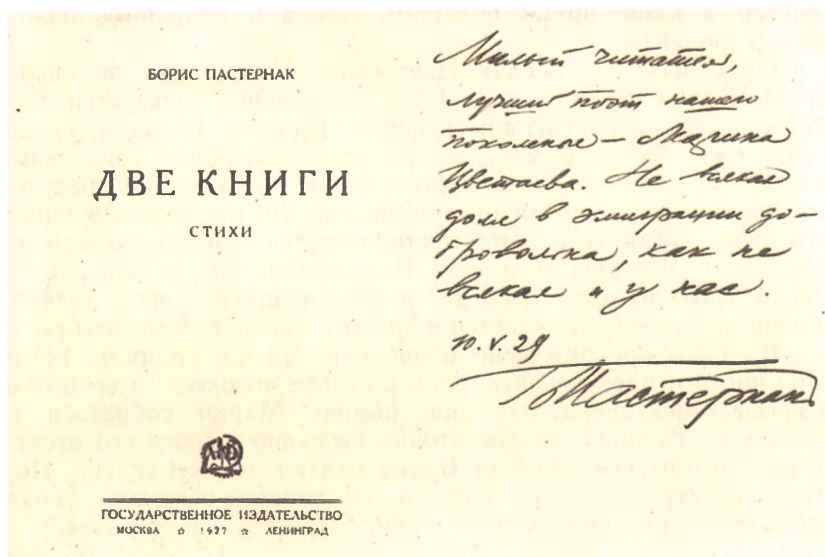 БОРИС ПАСТЕРНАК
ДВЕ КНИГИ
СТИХИ
ГОСУДАРСТВЕННОЕ ИЗДАТЕЛЬСТВО
МОСКВА ☆ 1927 ☆ ЛЕНИНГРАД
Милый читатель,
лучший поэт нашего
поколенья – Марина
Цветаева. Не всякая
доля в эмиграции до-
бровольна, как не
всякая и у нас.
10.V.29
БПастернак